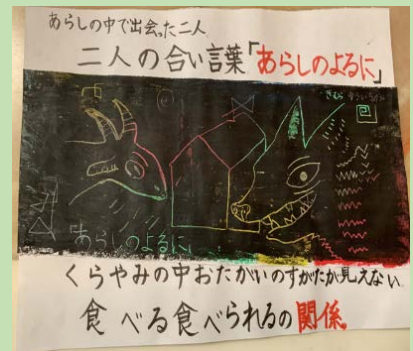 あらしの中で出会った二人
二人の合い言葉「あらしのよるに」
きむら ゆういち
あらしのよるに
くらやみの中おたがいのすがたが見えない
食べる食べられるの関係。